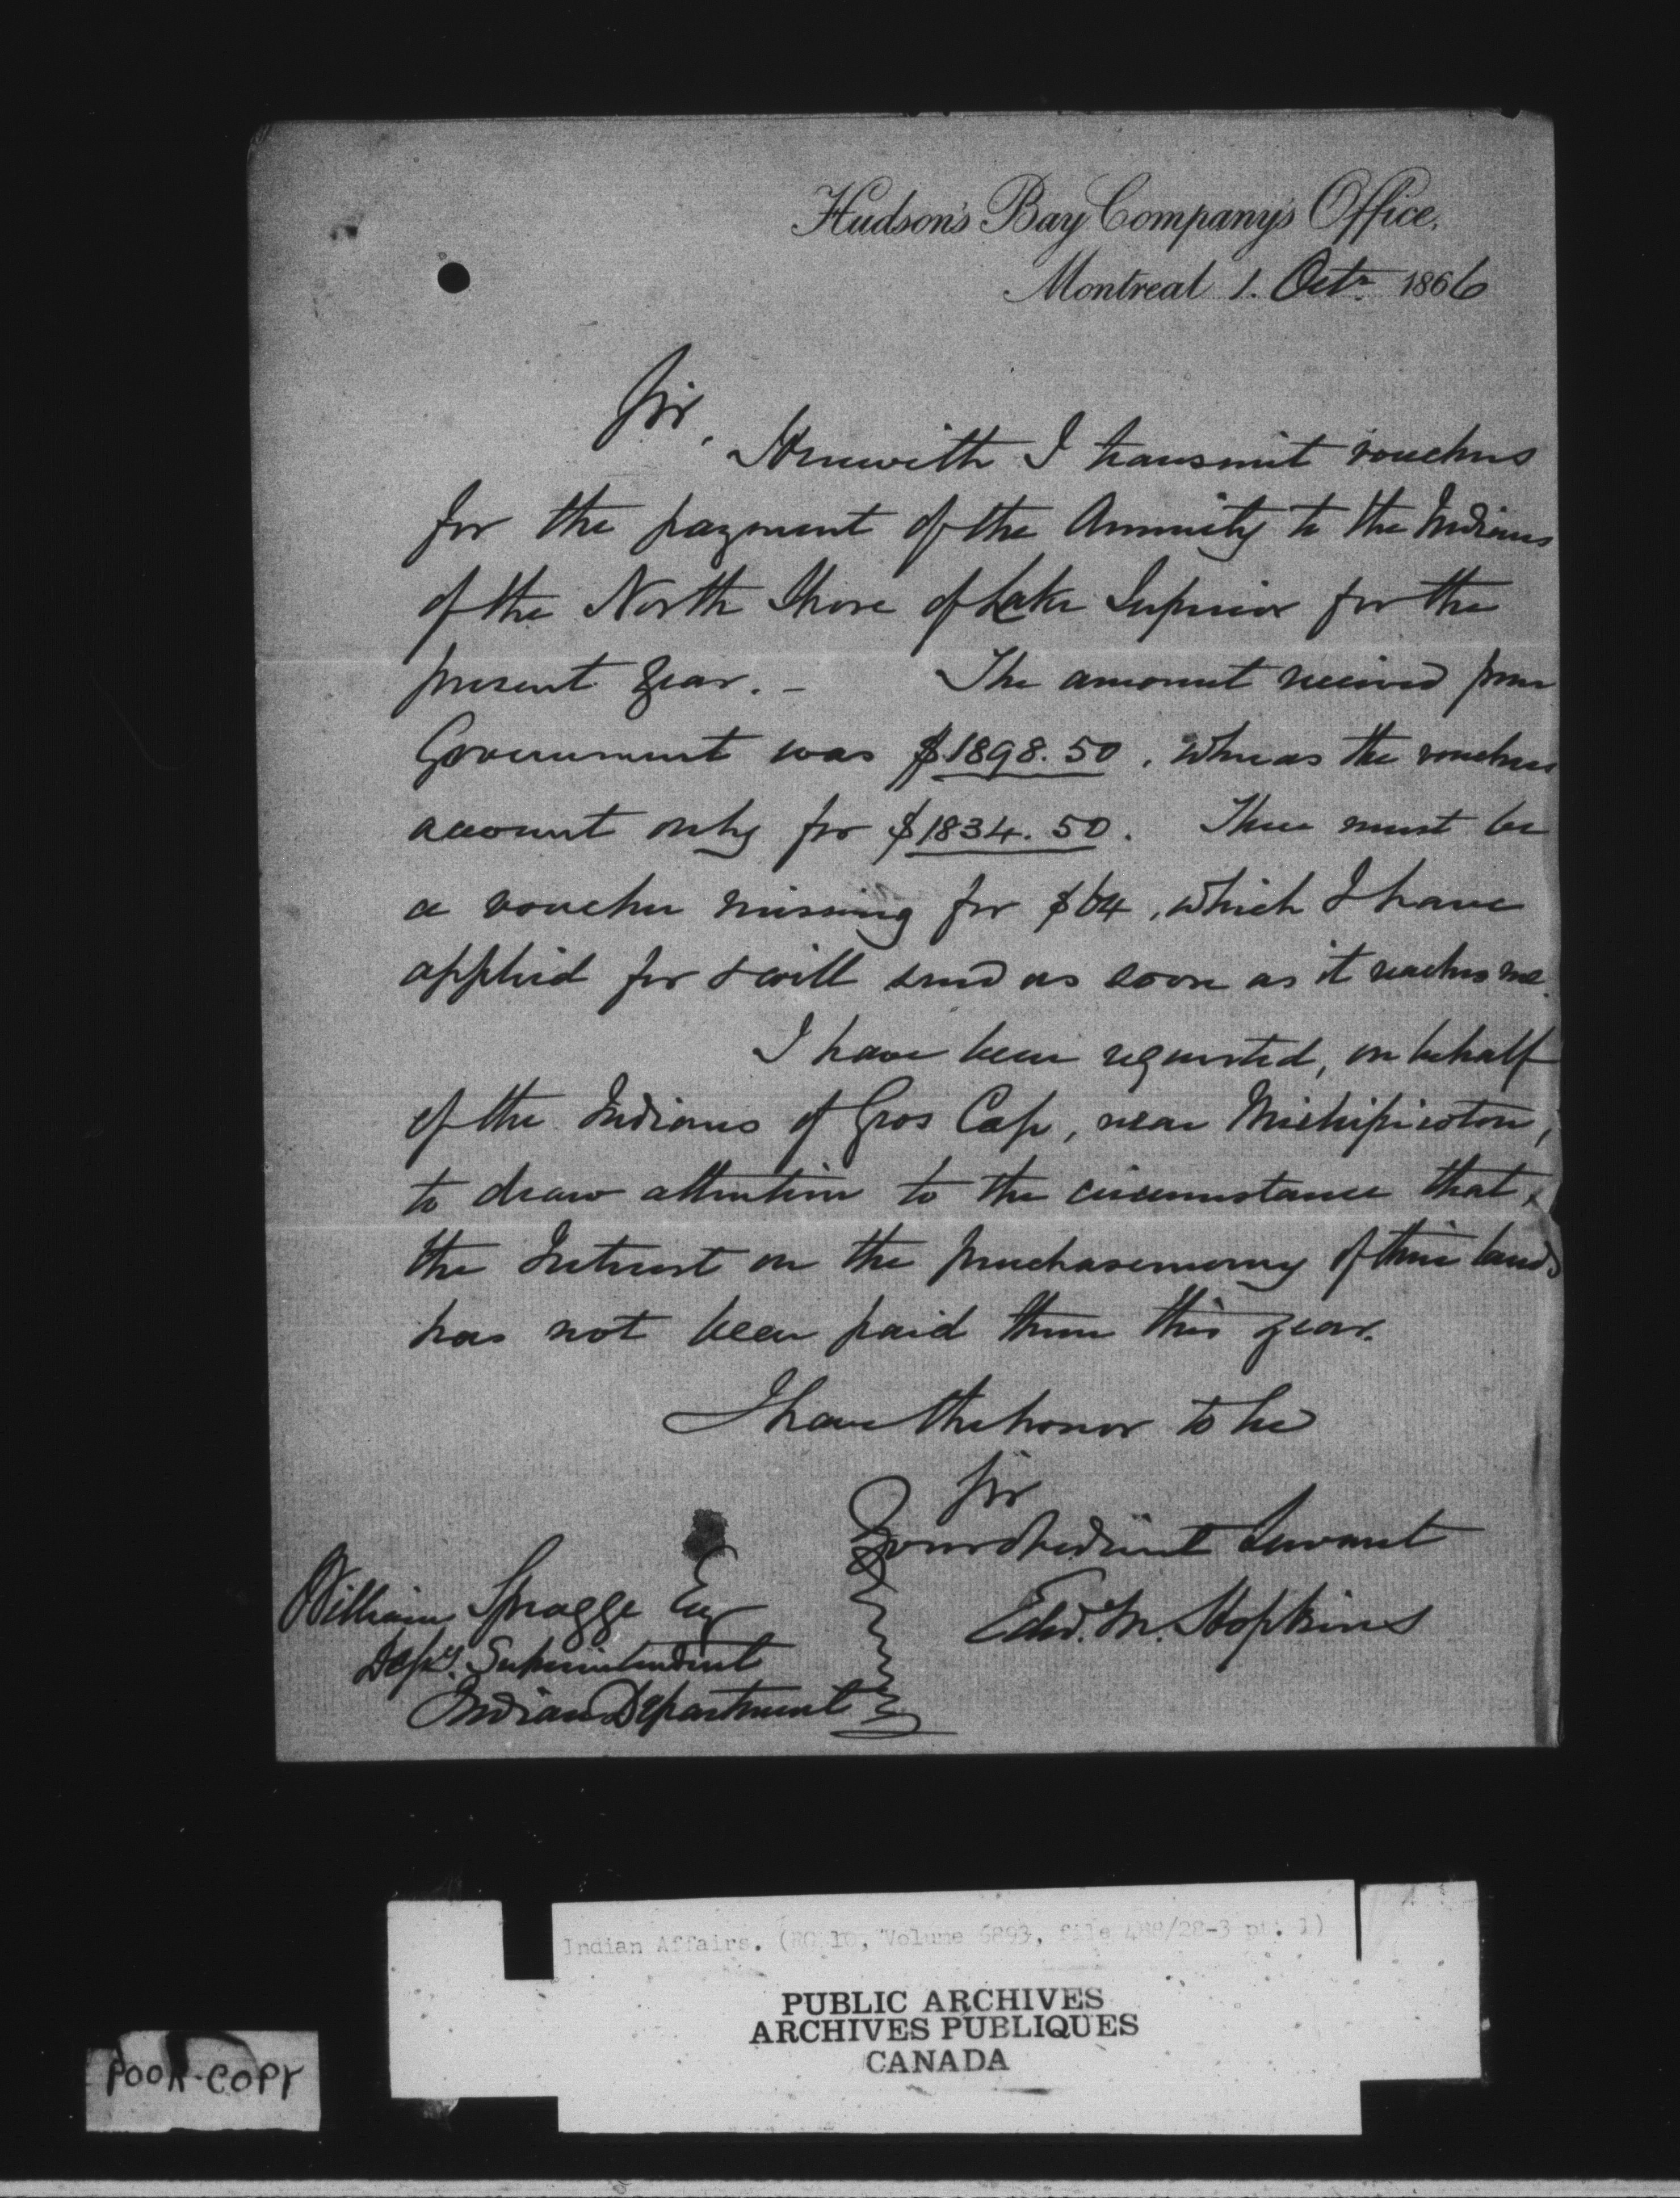 Hudson's Bay Company's Office,
Montreal 1. Octr 1866
Sir,
Herewith I transmit vouchers
for the payment of the Annuity to the Indians
of the North Shore of Lake Superior for the
present year. - The amount received from
Government was $1898.50, whereas the vouchers
account only for $1834.50. There must be
a voucher missing for $64, which I have
applied for & will send as soon as it reaches me.
I have been requested, on behalf
of the Indians of Gros Cap, near Michipicoton,
to draw attention to the circumstance that
the Interest on the purchasemoney of their lands
has not been paid them this year.
I have the honor to be
Sir
Your obedient Servant
Edw. M. Hopkins
William Spragge Esqr
Depy. Superintendent
Indian Department
Indian Affairs. (RG 10, Volume 6893, file 488/28-3 pt. 1)
PUBLIC ARCHIVES
ARCHIVES PUBLIQUES
CANADA
POOR COPY